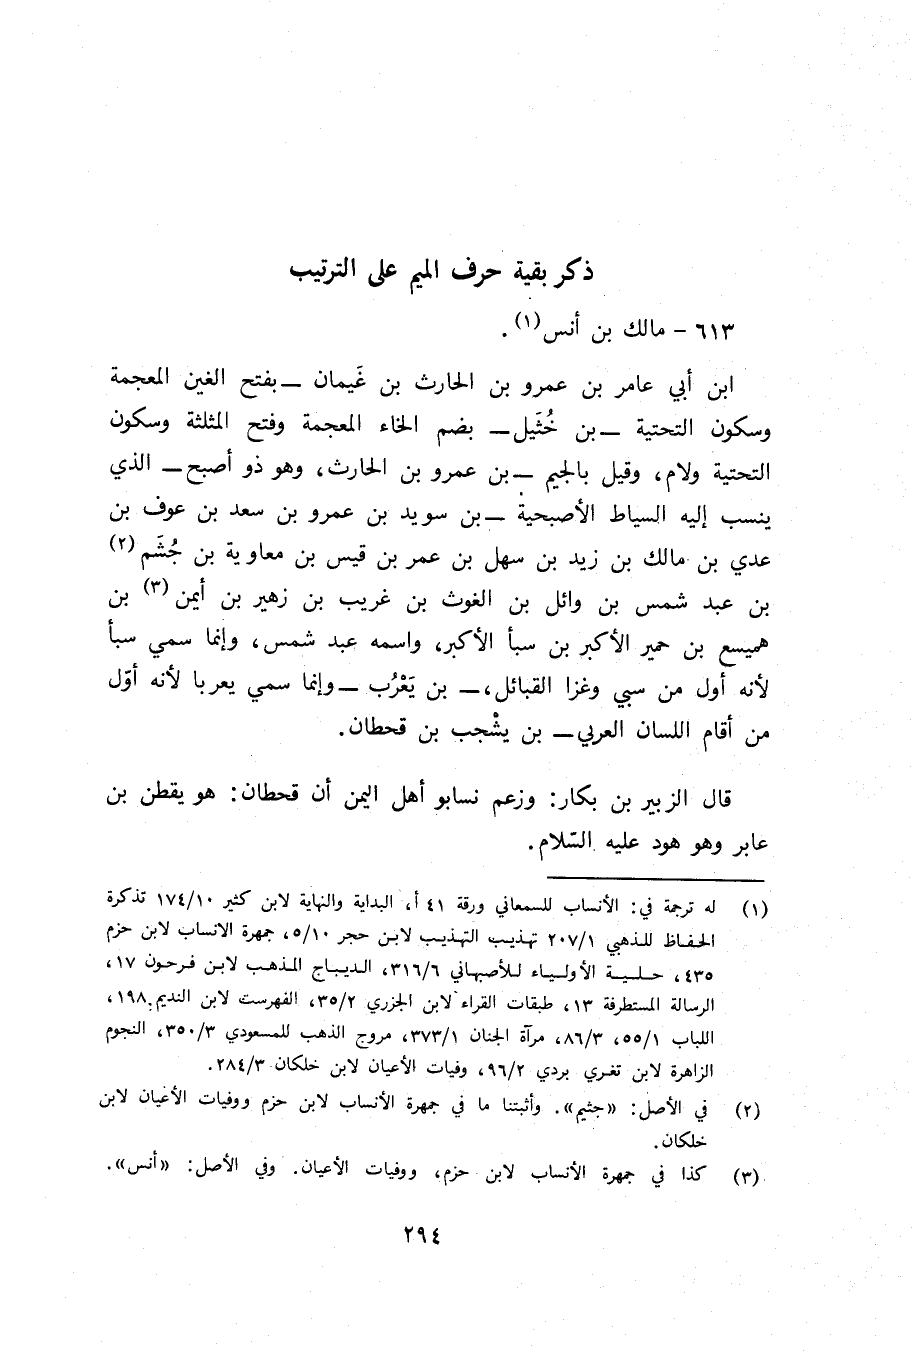 ذكر بقية حرف الميم على الترتيب
٦١٣ – مالك بن أنس (١) .
ابن أبي عامر بن عمرو بن الحارث بن غَيمان ــ بفتح الغين المعجمة
وسكون التحتية ــ بن خُثَيل ــ بضم الخاء المعجمة وفتح المثلثة وسكون
التحتية ولام، وقيل بالجيم ــ بن عمرو بن الحارث، وهو ذو أصبح ــ الذي
ينسب إليه السياط الأصبحية ــ بن سويد بن عمرو بن سعد بن عوف بن
عدي بن مالك بن زيد بن سهل بن عمر بن قيس بن معاوية بن جُشَم (٢)
بن عبد شمس بن وائل بن الغوث بن غريب بن زهير بن أيمن (٣) بن
هميسع بن حمير الأكبر بن سبأ الأكبر، واسمه عبد شمس، وإنما سمي سبأ
لأنه أول من سبي وغزا القبائل، ــ بن يَعْرُب ــ وإنما سمي يعربا لأنه أوّل
من أقام اللسان العربي ــ بن يشْجب بن قحطان.
قال الزبير بن بكار: وزعم نسابو أهل اليمن أن قحطان: هو يقطن بن
عابر وهو هود عليه السّلام.
(١) له ترجمة في: الأنساب للسمعاني ورقة ٤١ أ، البداية والنهاية لابن كثير ١٧٤/١٠ تذكرة
الحفاظ للذهبي ٢٠٧/١ تهذيب التهذيب لابن حجر ٥/١٠، جمهرة الانساب لابن حزم
٤٣٥، حلية الأولياء للأصبهاني ٣١٦/٦، الديباج المذهب لابن فرحون ١٧،
الرسالة المستطرفة ١٣، طبقات القراء لابن الجزري ٣٥/٢، الفهرست لابن النديم ١٩٨،
اللباب ٥٥/١، ٨٦/٣، مرآة الجنان ٣٧٣/١، مروج الذهب للمسعودي ٣٥٠/٣، النجوم
الزاهرة لابن تغري بردي ٩٦/٢، وفيات الأعيان لابن خلكان ٢٨٤/٣.
(٢) في الأصل: «جثيم». وأثبتنا ما في جمهرة الأنساب لابن حزم ووفيات الأعيان لابن
خلكان.
(٣) كذا في جمهرة الأنساب لابن حزم، ووفيات الأعيان. وفي الأصل: «أنس».
٢٩٤